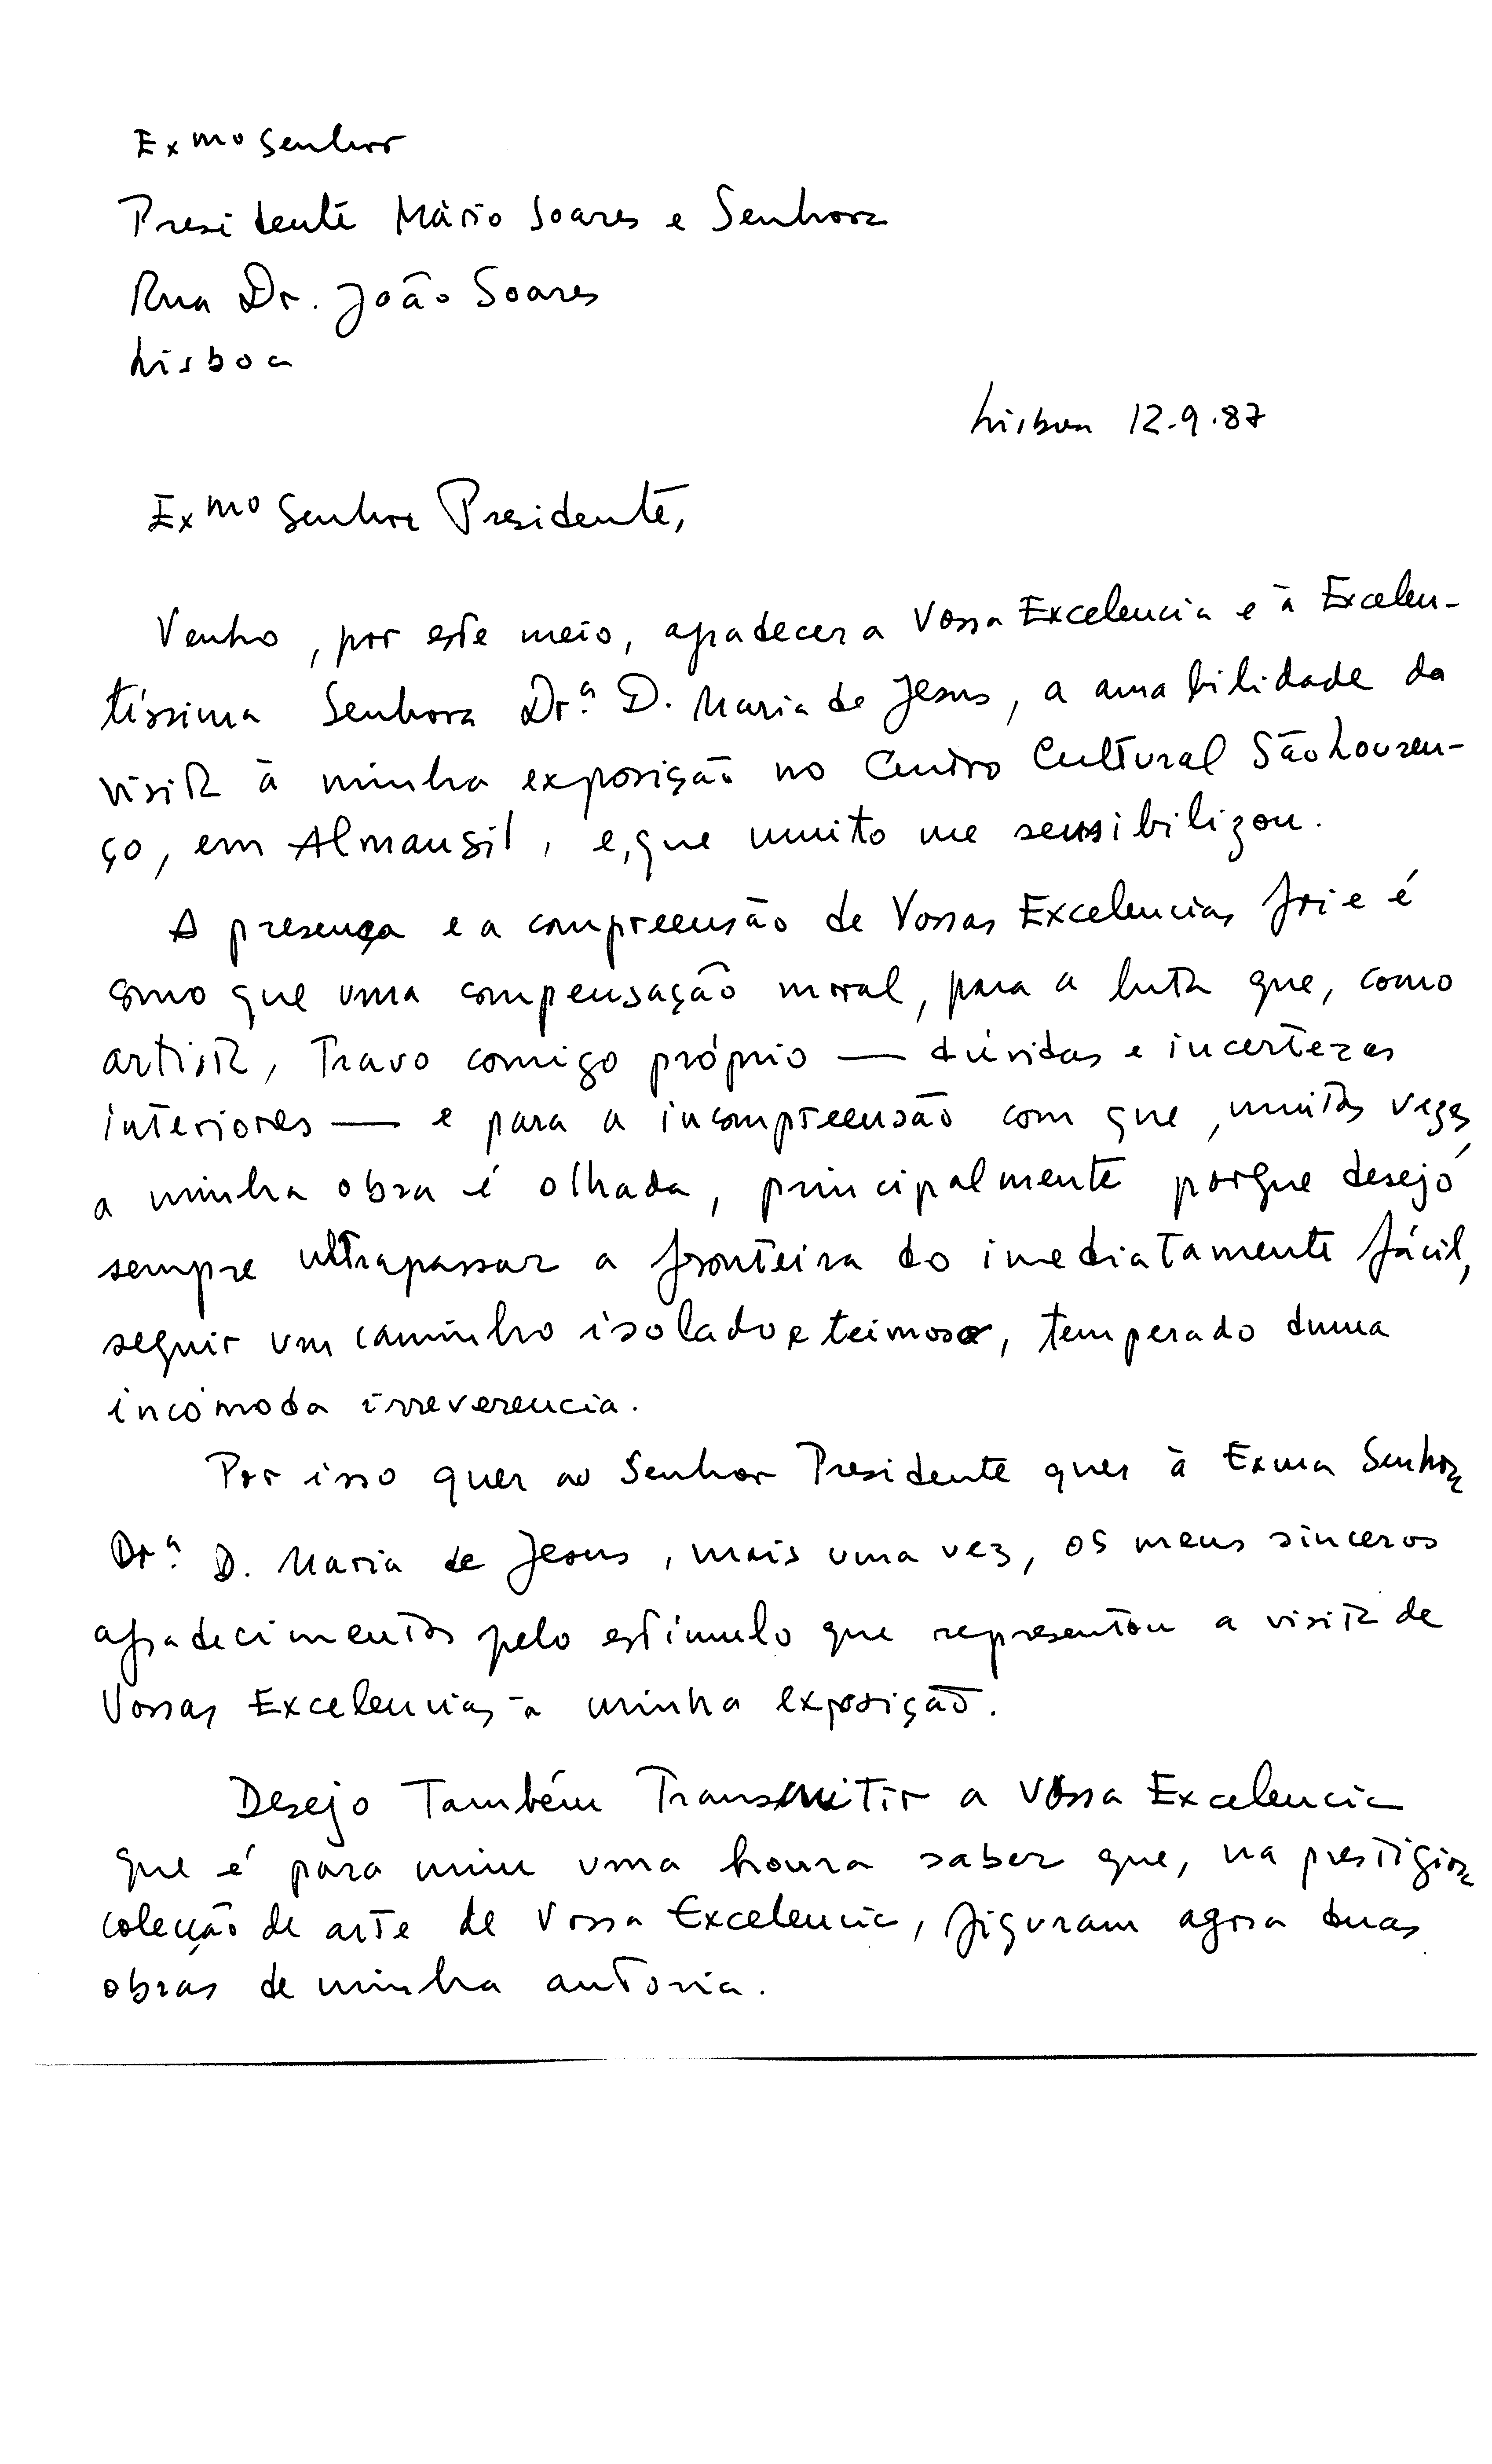 Exmo Senhor
Presidente Mário Soares e Senhora
Rua Dr. João Soares
Lisboa
Lisboa 12.9.87
Exmo Senhor Presidente,
Venho, por este meio, agradecer a Vossa Excelencia e à Excelen-
tíssima Senhora Dr.ª D. Maria de Jesus, a amabilidade da
visita à minha exposição no Centro Cultural São Louren-
ço, em Almansil, e, que muito me sensibilizou.
A presença e a compreensão de Vossas Excelencias foi e é
como que uma compensação moral, para a luta que, como
artista, travo comigo próprio — dúvidas e incertezas
interiores — e para a incompreensão com que, muitas vezes,
a minha obra é olhada, principalmente porque desejo
sempre ultrapassar a fronteira do imediatamente fácil,
seguir um caminho isolado e teimoso, temperado duma
incómoda irreverencia.
Por isso quer ao Senhor Presidente quer à Exma Senhora
Dr.ª D. Maria de Jesus, mais uma vez, os meus sinceros
agradecimentos pelo estímulo que representou a visita de
Vossas Excelencias à minha exposição.
Desejo também transmitir a Vossa Excelencia
que é para mim uma honra saber que, na prestigiosa
colecção de arte de Vossa Excelencia, figuram agora duas
obras de minha autoria.